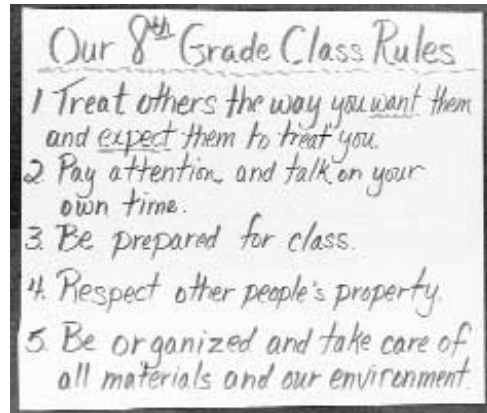 Our 8th Grade Class Rules
1 Treat others the way you want them
and expect them to treat you.
2. Pay attention, and talk on your
own time.
3. Be prepared for class.
4. Respect other people's property.
5. Be organized and take care of
all materials and our environment.